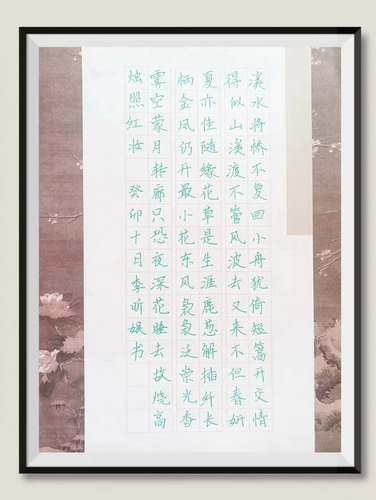 溪水将桥不复回小舟犹倚短篙开交情
得似山溪渡不管风波去又来不但春妍
夏亦佳随缘花草是生涯鹿葱解插纤长
柄金凤仍开最小花东风袅袅泛崇光香
雾空蒙月转廊只恐夜深花睡去故烧高
烛照红妆 癸卯十日李昕娱书